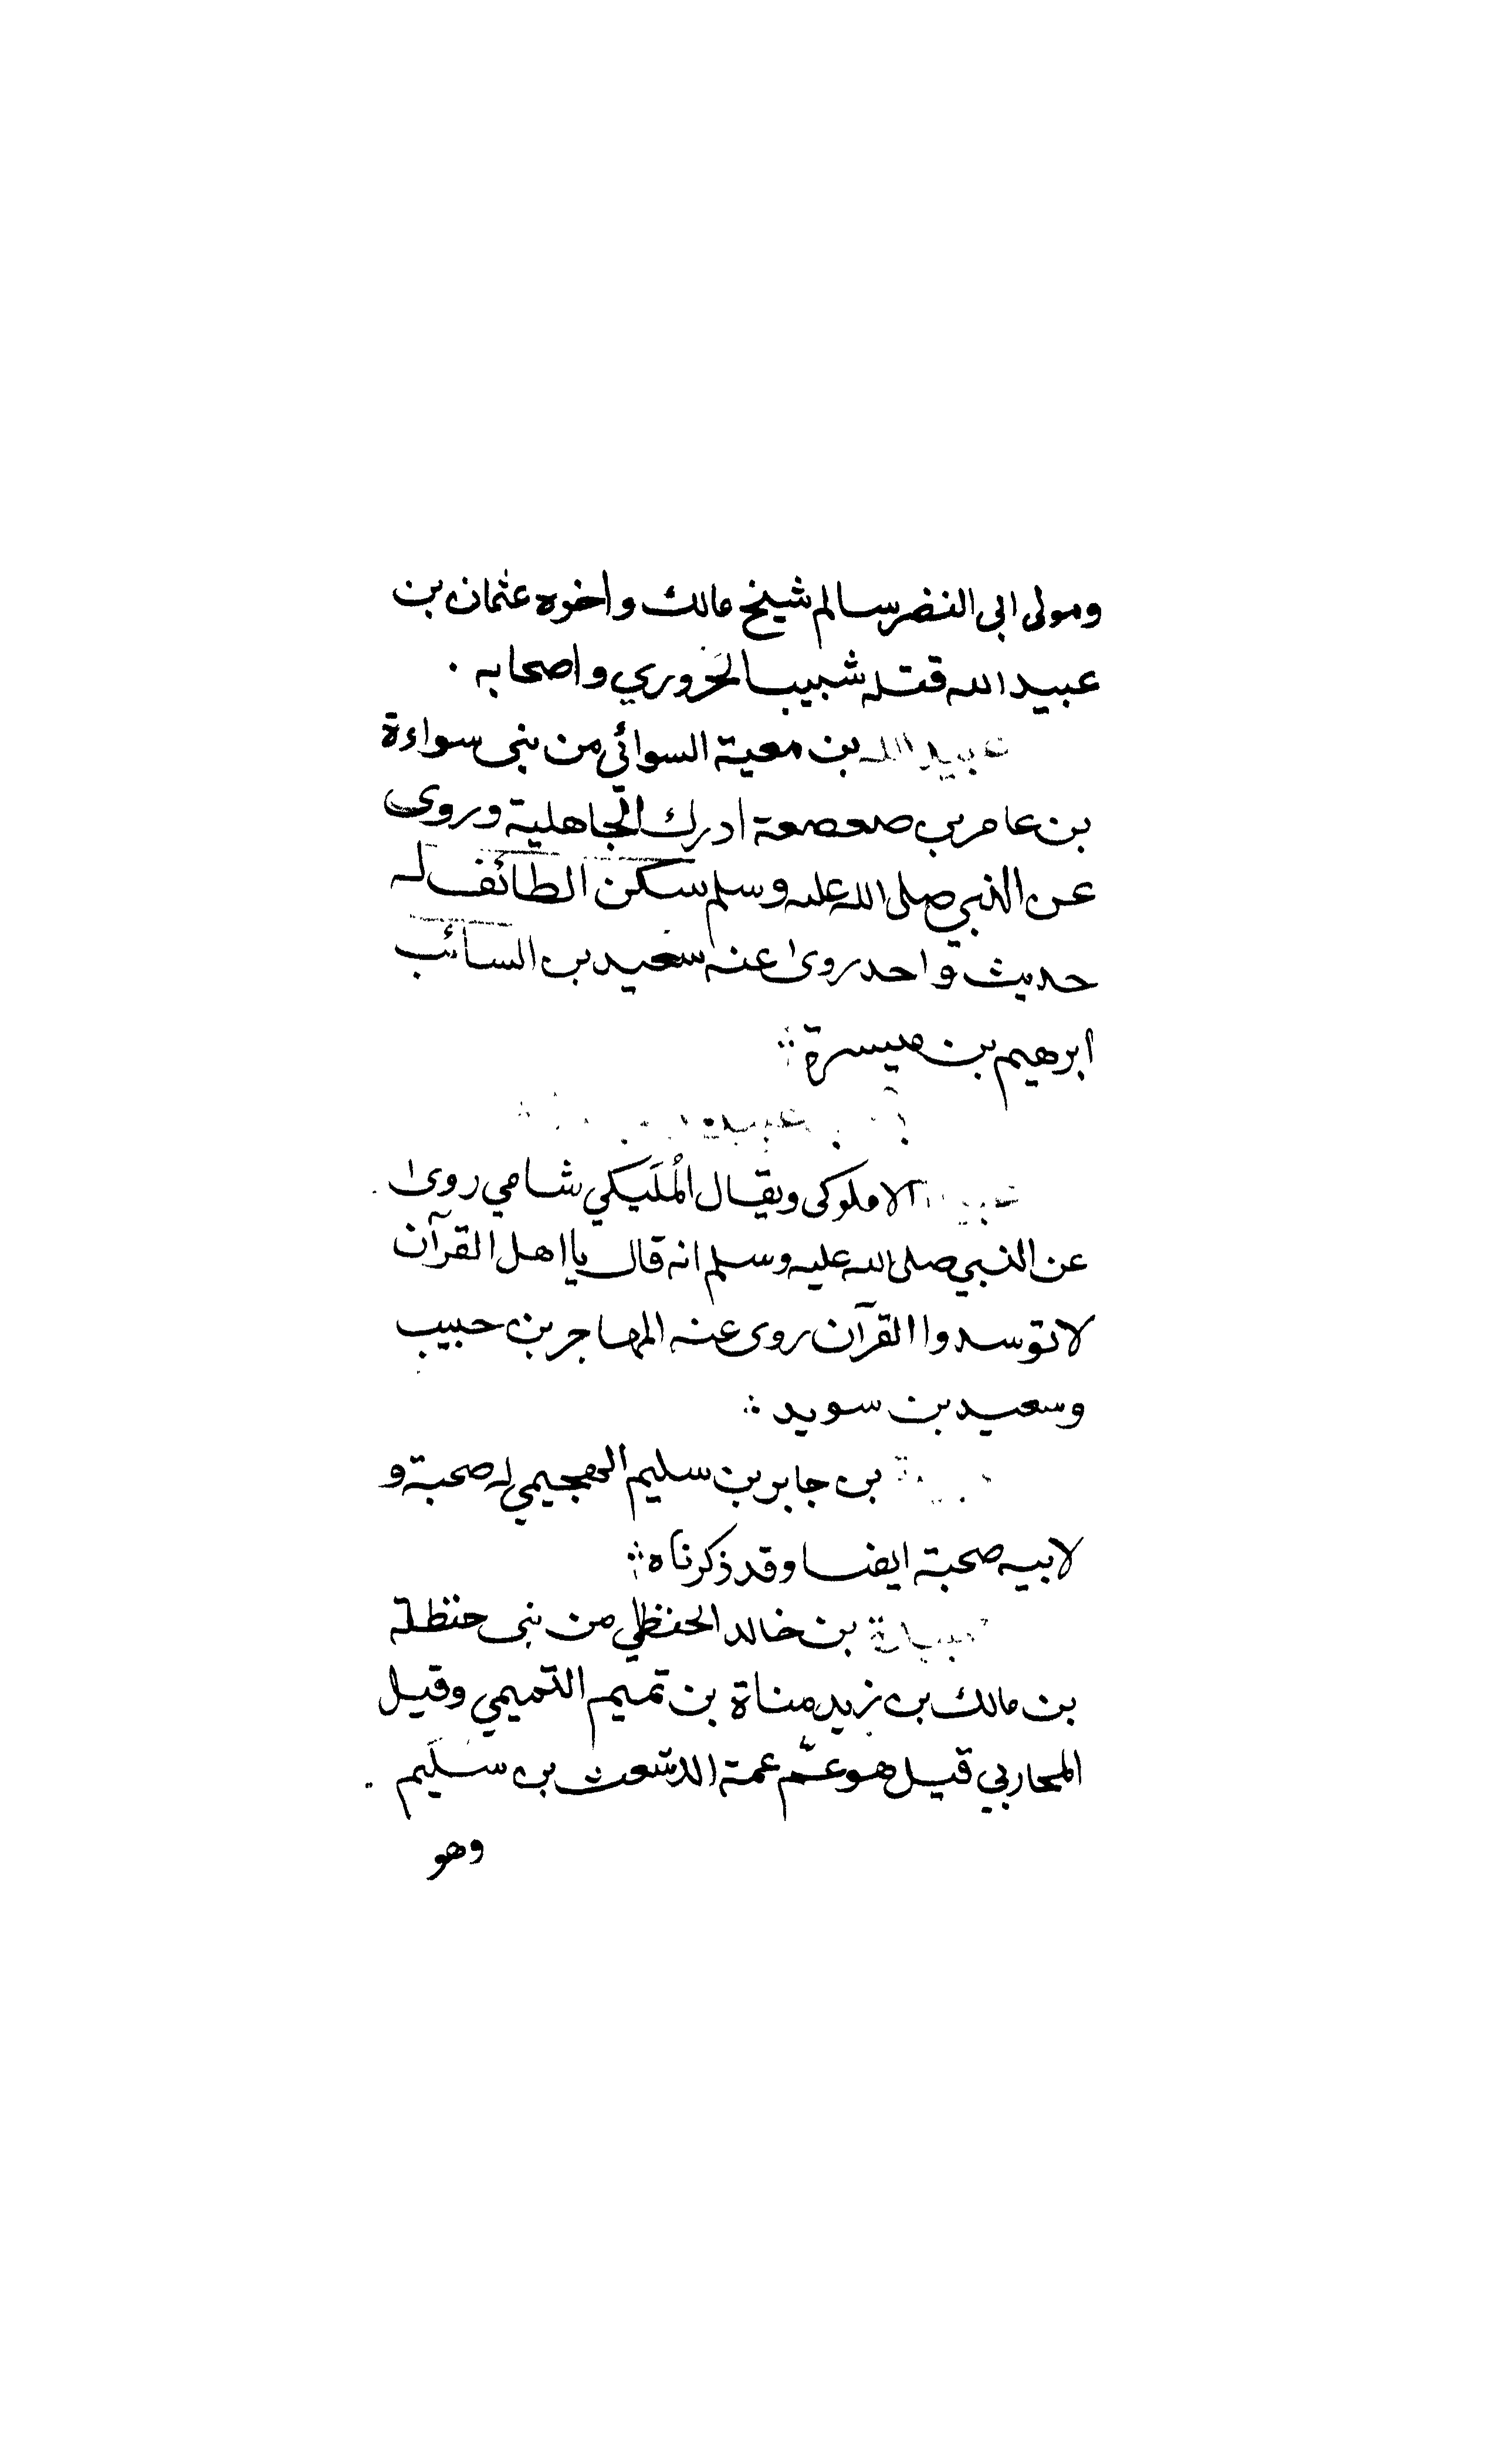 ومولى ابى النضر سالم شيخ مالك واخوه عثمان بن
عبيد الله قتله شبيب الحَروري واصحابه .
عبيد الله بن معية السوائي من بنى سواءة
بن عامر بن صعصعة ادرك الجاهلية وروى
عن النبي صلى الله عليه وسلم سكن الطائف له
حديث واحد روى عنه سعيد بن السائب
ابرهيم بن ميسرة
عبيد
عبيد الاملوكى ويقال المُلَيكي شامي روى
عن النبي صلى الله عليه وسلم انه قال يا اهل القرآن
لا توسدوا القرآن روى عنه المهاجر بن حبيب
وسعيد بن سويد
بن جابر بن سليم الهجيمي له صحبة و
لابيه صحبة ايضا وقد ذكرناه
عبيدة بن خالد الحنظلي من بنى حنظلة
بن مالك بن زيد مناة بن تميم التميمي وقيل
المحاربي قيل هو عمّ عمة الاشعث بن سُلَيم
وهو